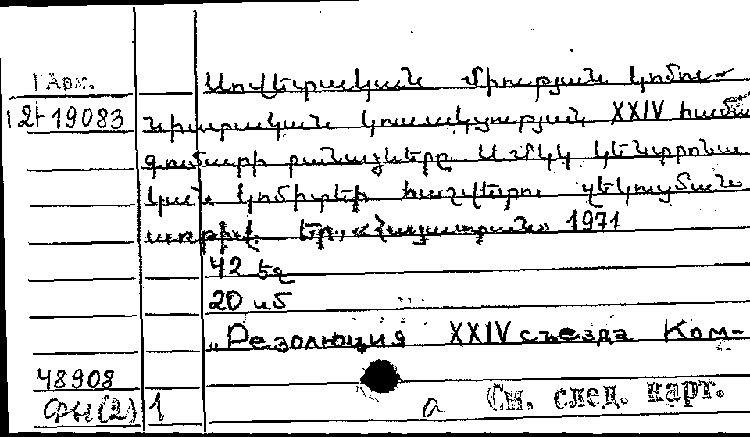 1 Арм.
Սովետական Միության կոմու-
12Ի 19083
նիստական կուսակցության XXIV համա
գումարի բանաձևերը ՍՄԿԿ կենտրոնա
կան կոմիտեի հաշվետու զեկուցման
առթիվ. Եր., «Հայաստան» 1971
42 էջ
20 սմ
„Резолюция XXIV съезда Ком-
48908
ФЫ(2) 1
а См. след. карт.